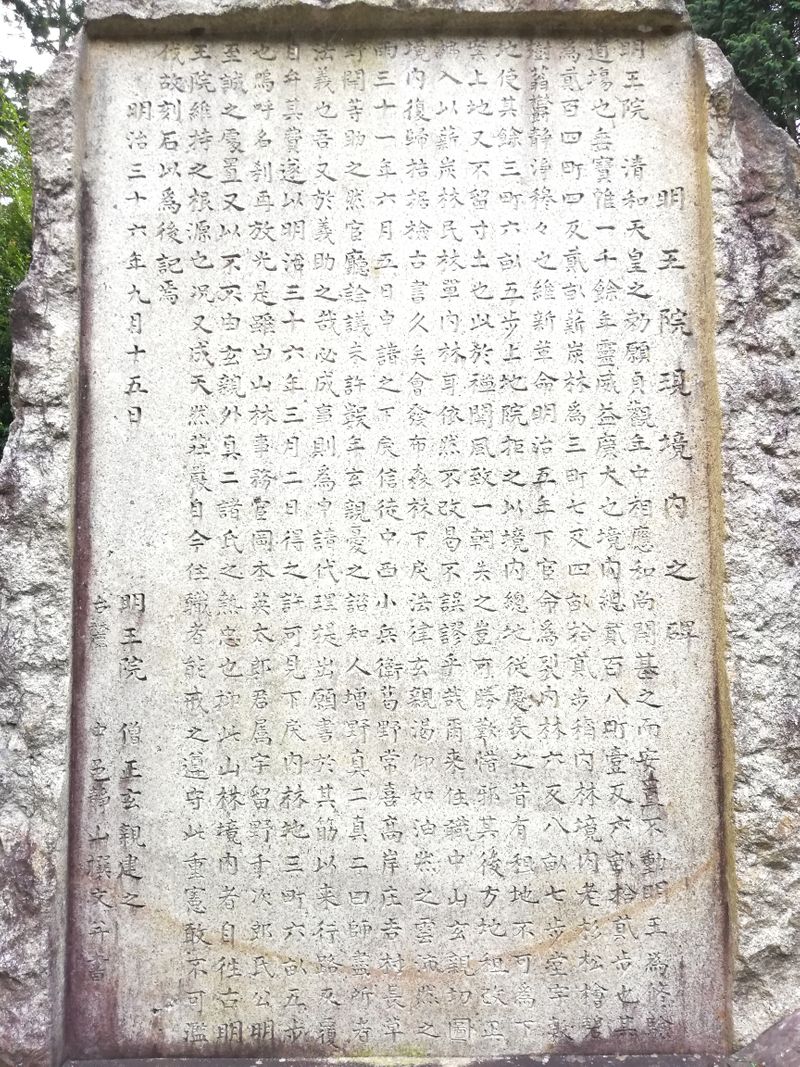 明王院現境内之碑
明王院 清和天皇之勅願貞觀年中相應和尚開基之而安置不動明王為修驗
道場也無寶惟一千餘年靈威益廣大之境内總貳百八町壹反六畝拾貳步也其
為貳百四町四反貳畝薪炭林為三町七反四畝拾貳步稱内林境内老杉松檜
樹蓊鬱靜淨穆々也維新革命明治五年下官命為裂内林六反八畝七步堂宇敷
地使其餘三町六畝五步上地院拒之以境内總地從慶長之昔有租地不可為下
渡上地又不留寸土也此於禮閣風致一朝失之豈可勝歎惜邪其後方地租改正
編入以薪炭林民林單内林耳依然不改曷不誤謬乎哉爾来住職中山玄親切圖
境内復歸拮据檢古書久矣會發布森林下戻法律玄親渇仰如油然之雲沛然之
雨三十一年六月五日申請之下戻信徒中西小兵衛葛野常喜高岸庄吾村長草
野開等助之然官廳詮議未許數年玄親憂之諮知人增野真二真二曰師盡所者
法義也吾又於義助之哉必成事則為申請代理提出願書於其筋以来行路反覆
自弁其費遂以明治三十六年三月二日得之許可見下戻内林地三町六畝五步
也嗚呼名刹再放光是雖由山林事務官岡本英太郎君属宇留野千次郎氏公明
至誠之處置又以不不由玄親外真二諸氏之熱忠也抑此山林境内者自徃古明
王院維持之根源也况又成天然莊嚴自今住職者能戒之遵守此重憲敢不可濫
伐故刻石以為後記焉
明治三十六年九月十五日
明王院 僧正玄親建之
中邑 撰文并書